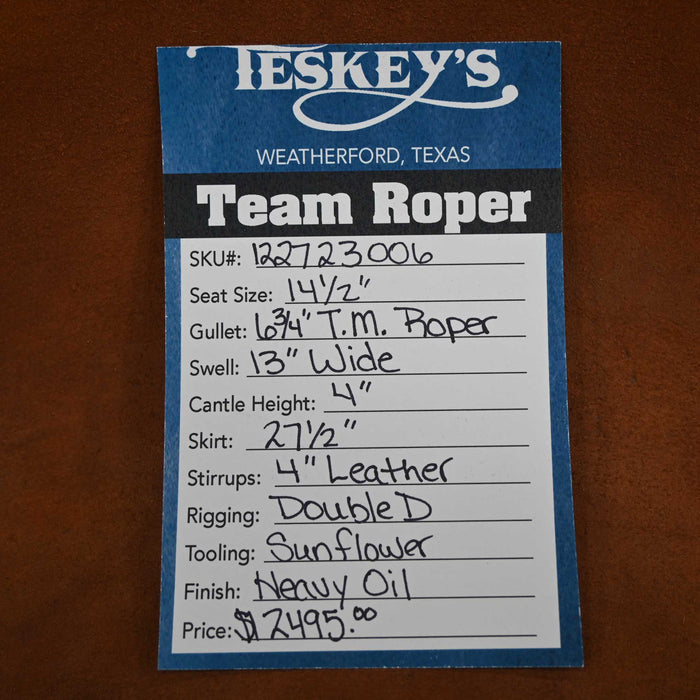 TESKEY'S
WEATHERFORD, TEXAS
Team Roper
SKU#: 122723006
Seat Size: 14 1/2"
Gullet: 6 3/4" T.M. Roper
Swell: 13" Wide
Cantle Height: 4"
Skirt: 27 1/2"
Stirrups: 4" Leather
Rigging: Double D
Tooling: Sunflower
Finish: Heavy Oil
Price: $2495.00